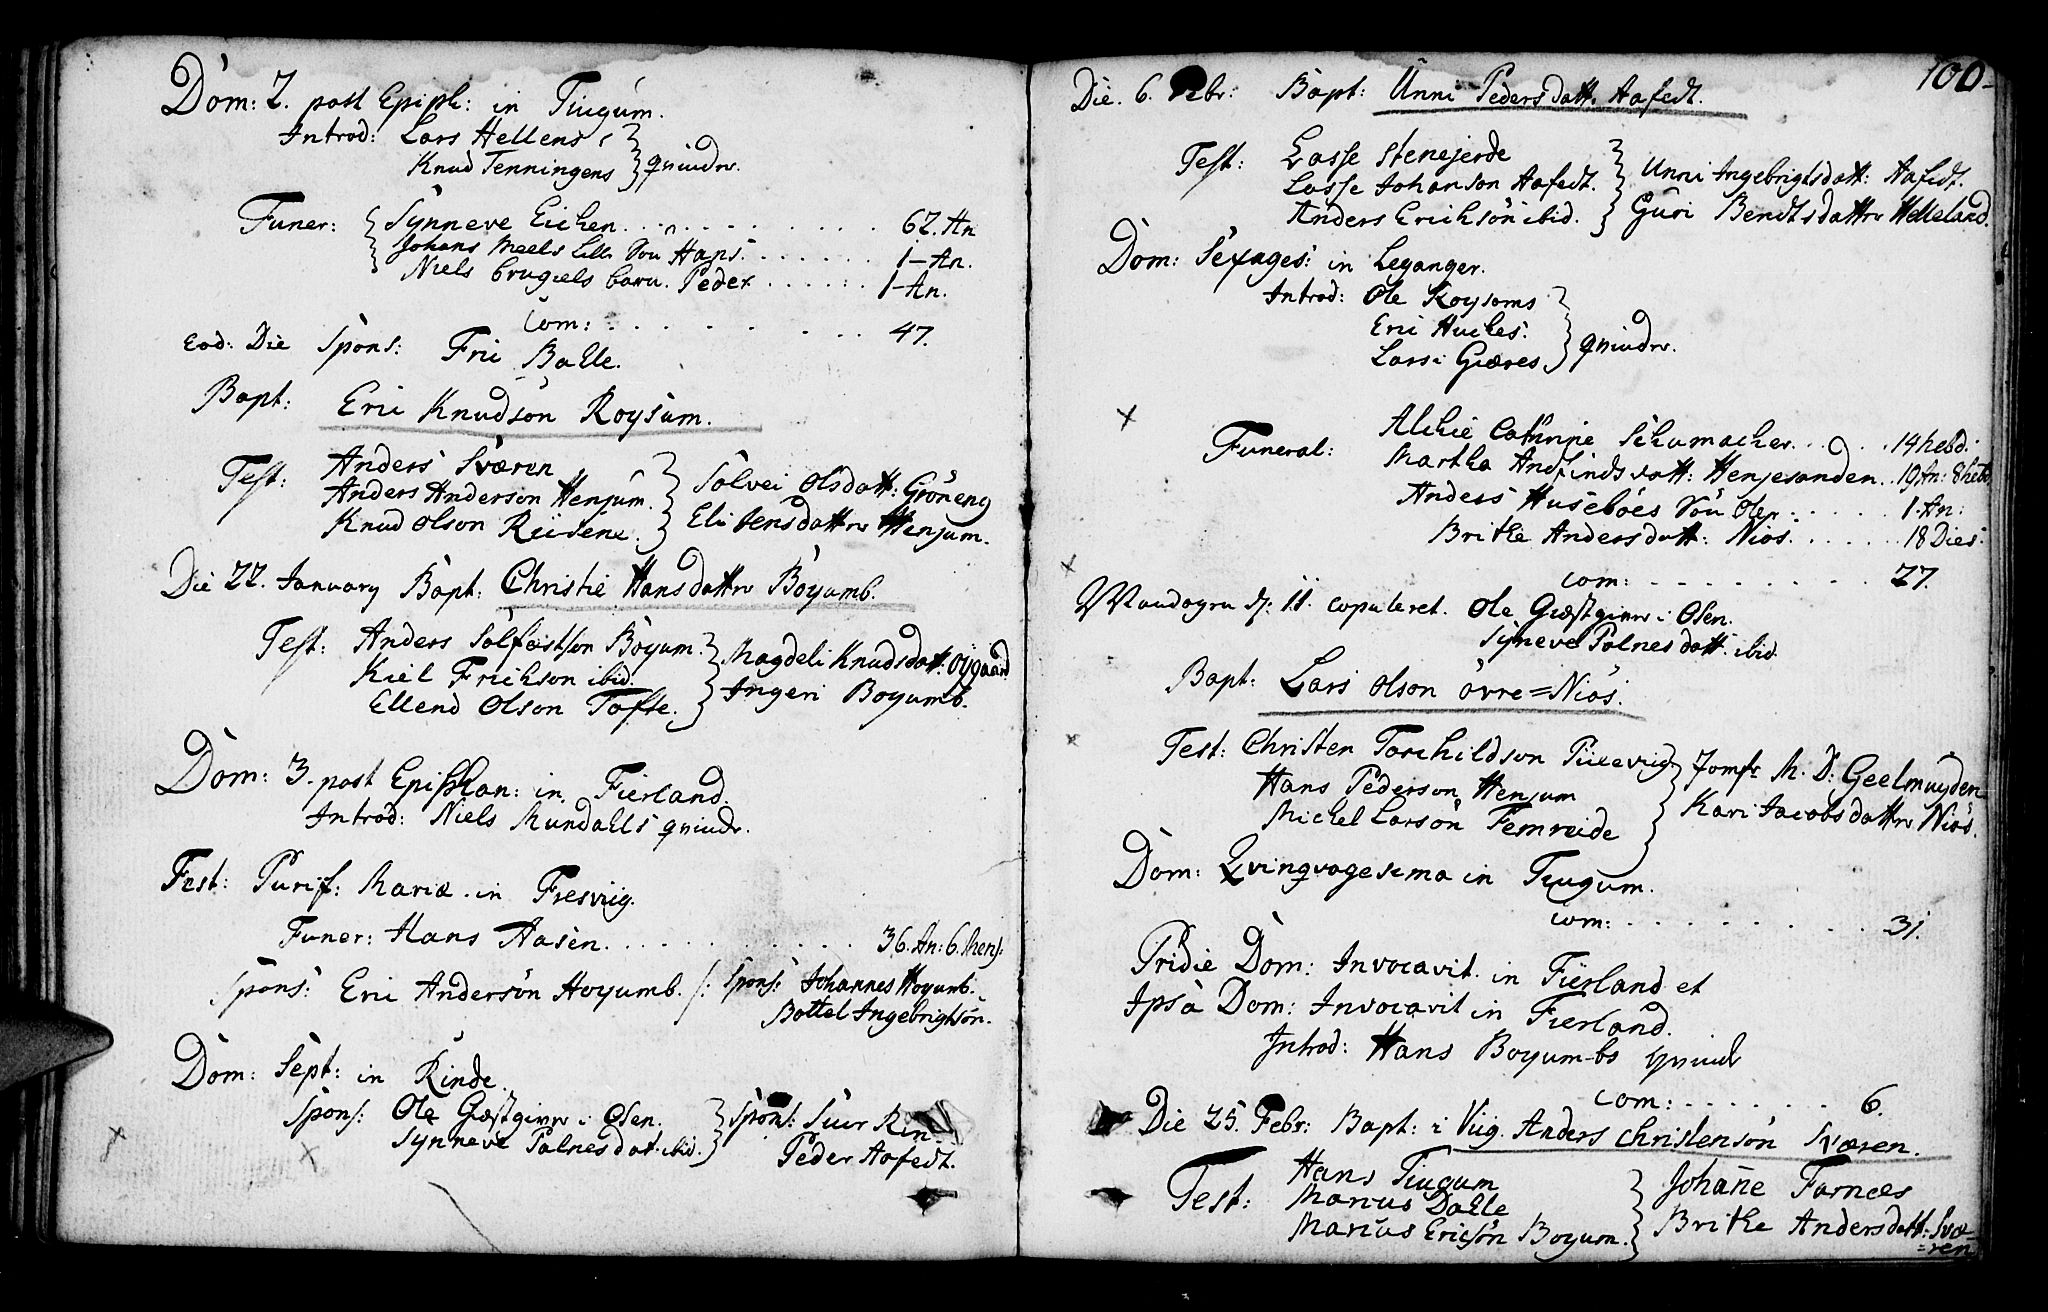 Dom: 2. post Epiph: in Tiugum.
Introd: Lars Hellens
Knud Tenningens } qvindr.
Funer: { Synneve Eichen . . . . . . . . . 62. An
Johans Meels Lille Søn Hans . . . . . . . 1-An.
Niels barn. Peder . . . . . . 1-An.
Com: . . . . . . . . . 47.
Eod: Die Spons: Balle.
Bapt: Eric Knudsön Roysum.
Test: Anders Sværen
Anders Anderson Henjum.
Knud Olson
} Solvei Olsdatt: Gröneng
Eli Jensdattr Henjum.
Die 22. January Bapt: Christie Hansdattr Böyumb.
Test: Anders Solfestson Böyum.
Kiel Erichson ibid.
Ellend Olson Tofte.
} Magdeli Knudsdatt. Öygaard
Ingeri Boyumb.
Dom: 3. post Epiphan: in Fierland.
Introd: Niels Mundahls qvindr.
Fest: Purif: Mariæ. in Fresviig.
Funer: Hans Aasen. . . . . . . . . . . . 36. An: 6. Mens:
Spons: Eric Andersön Hoyumb. /: Spons: Johannes Hoyumb.
Bottel Ingebrigtsön.
Dom: Sept: in Rinde.
Spons: Ole Gæstgivrr i Osen.
Synneve Palnesdat. ibid.
} Spons: Siur
Peder Aafedt.
100
Die. 6. Febr: Bapt: Unni Pedersdatt. Aafedt.
Test: Lasse Stenejerde
Lasse Johanson Aafedt.
Anders Erichsön ibid.
} Unni Ingebrigtsdatt: Aafedt.
Guri Bendtsdattr Helleland.
Dom: Sexages: in Leganger.
Introd: Ole Roysoms
Eric Huckes:
Lars Giæres
} qvindrr.
Funeral: Alchie Cathrine Schumacher. . . . . 14 hebd:
Martha Andfindsdatt: Henjesanden. . 19 An: 8 heb
Anders Huseböes Sön Ole . . . . . . 1. An:
Brithe Andersdatt: Niös. . . . . . . 18 Dies:
Com: . . . . . . . . . 27.
Mandagen d: 11. copuleret. Ole Gæstgivrr i Osen.
Synneve Palnesdatt. ibid.
Bapt: Lars Olson övre=Niös.
Test: Christen Torchildson
Hans Pederson Henjum
Michel Larsön Femreide
} Jomfr M. D: Geelmuyden
Kari Jacobsdattr Niös.
Dom: Qvingvagesima in Tiugum.
Com: . . . . . . . . . . 31.
Pridie Dom: Invocavit. in Fierland et
Ipsa Dom: Invocavit in Fierland.
Introd: Hans Boyum-bs qvindr
Com: . . . . . . . 6.
Die 25. Febr: Bapt: i Viig. Anders Christensön Sværen.
Test: Hans Tiugum
Marcus Dalle
Marcus Ericsön Boyum.
} Johañe Farnæs
Brithe Andersdatt: Svæ-
=ren